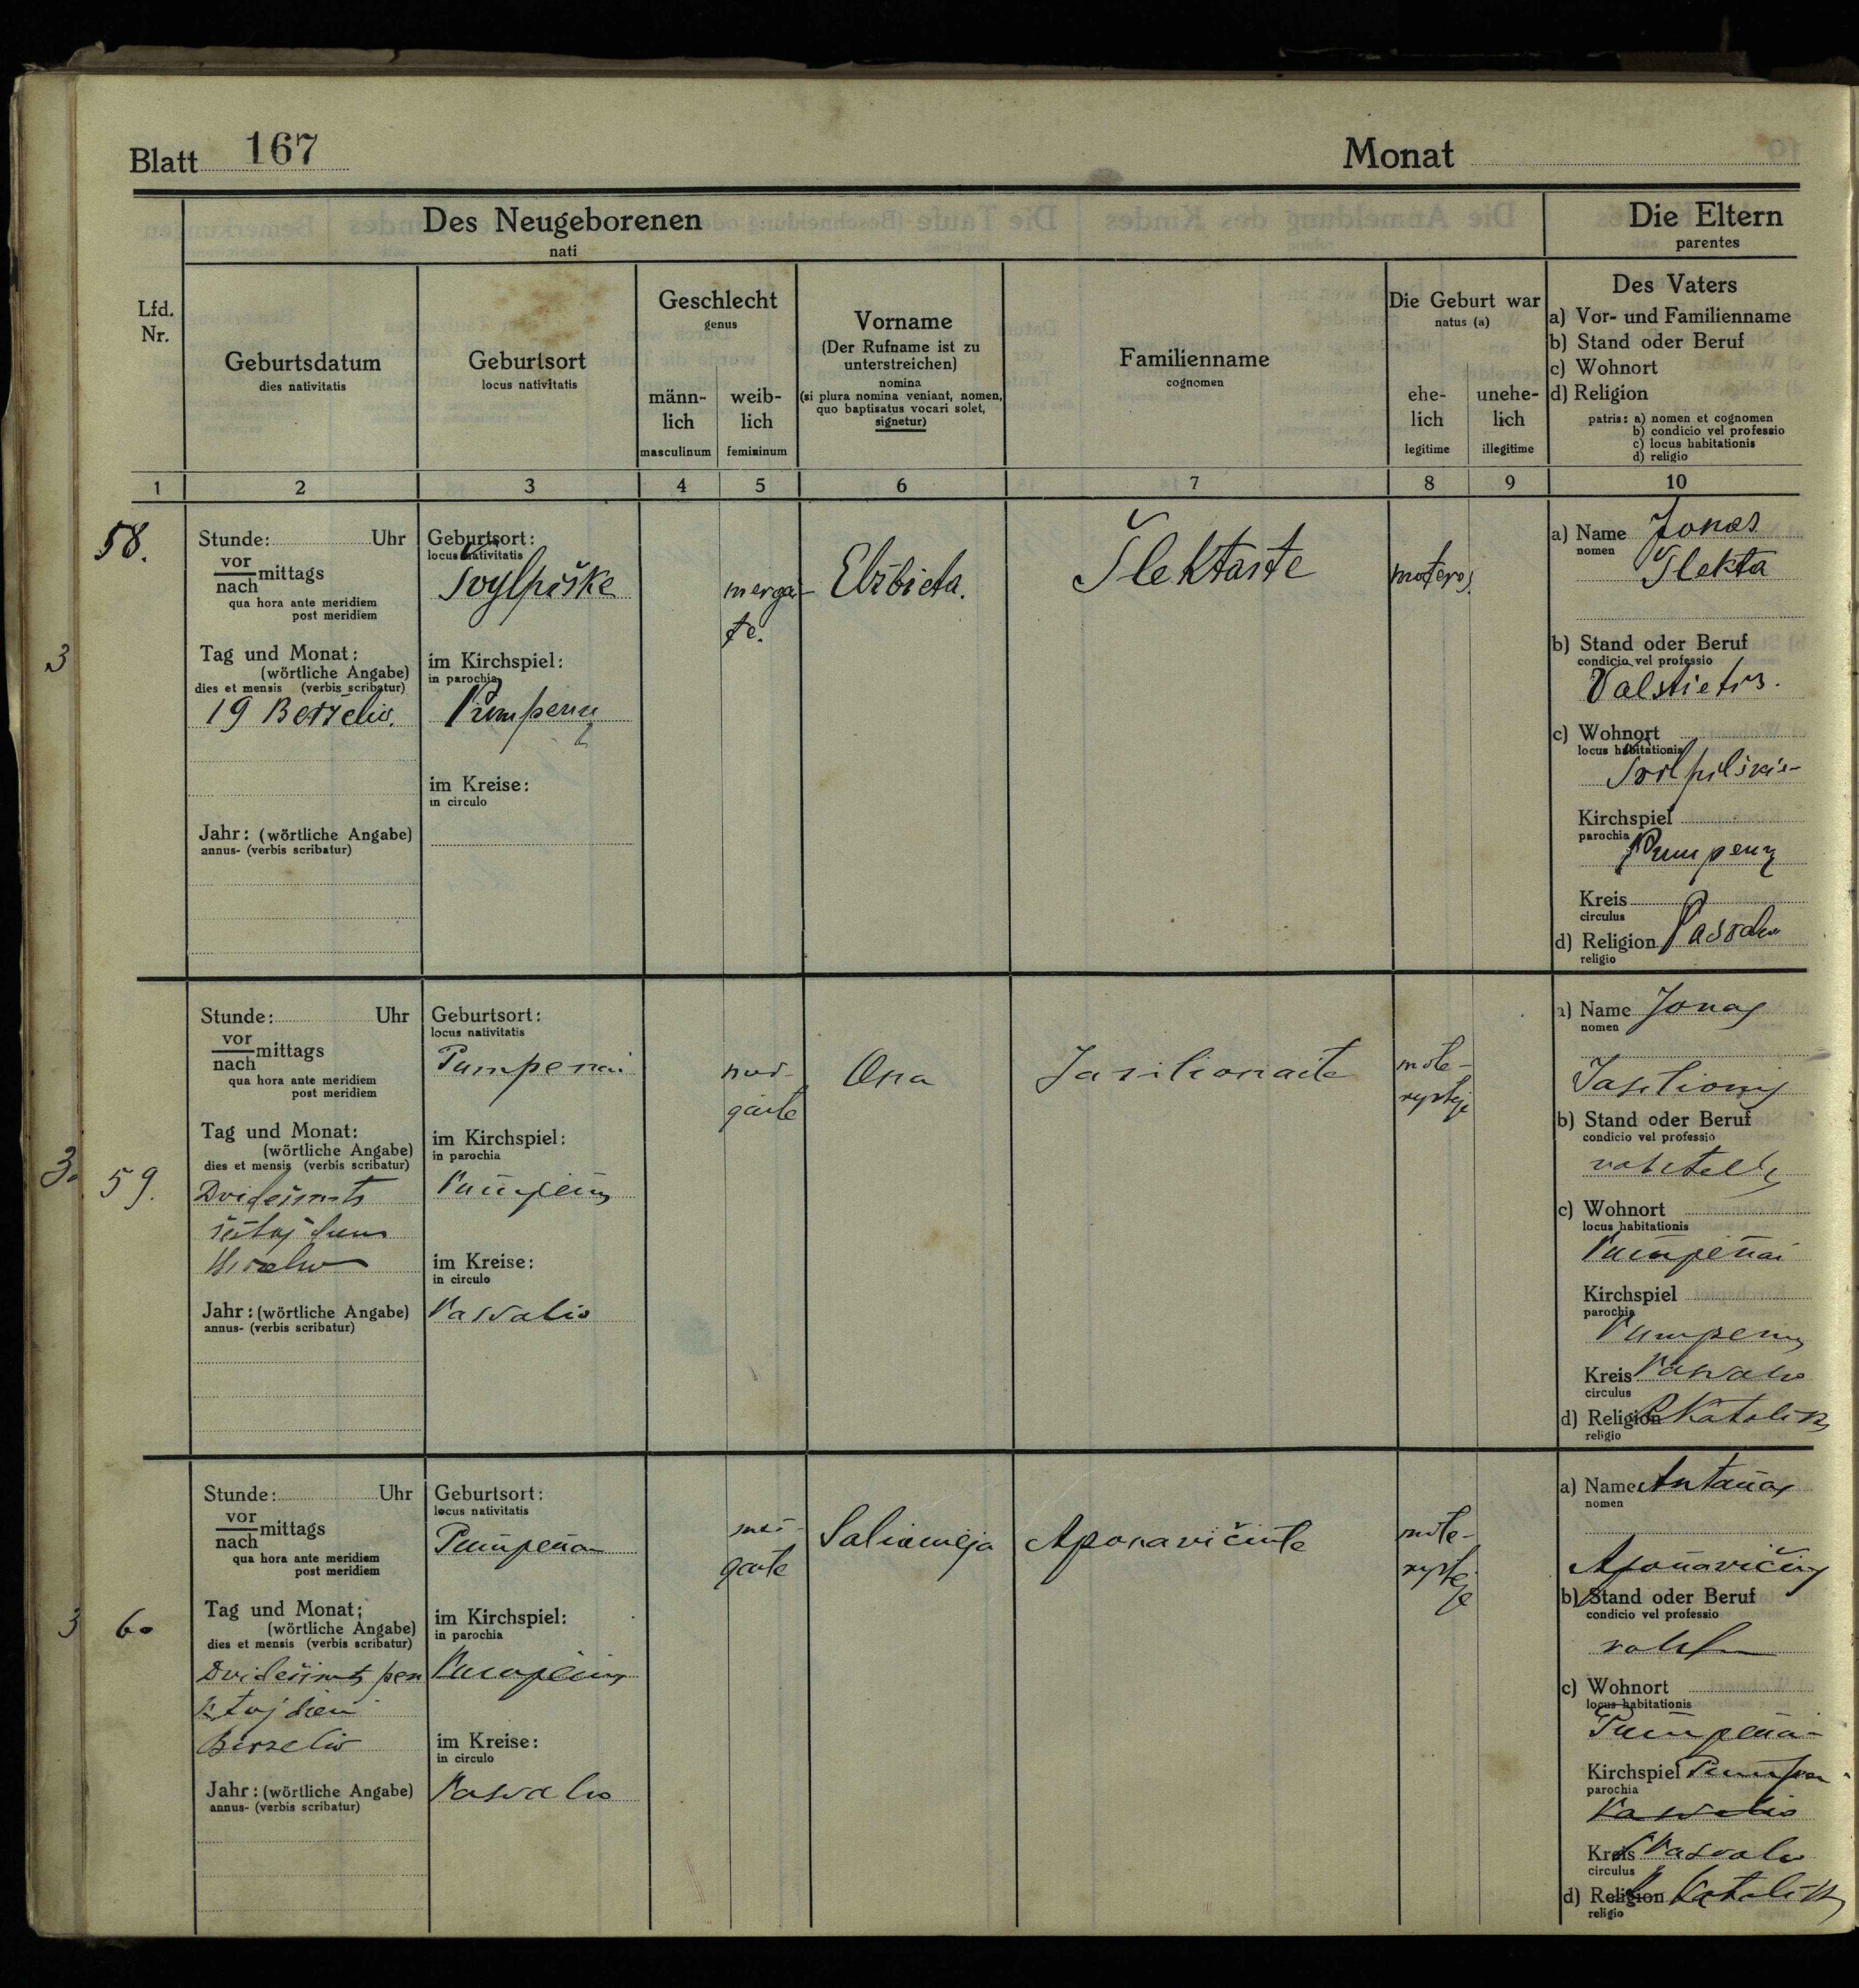 Blatt 167
Monat
Des Neugeborenen
nati
Die Eltern
parentes
Lfd.
Nr.
Geburtsdatum
dies nativitatis
Geburtsort
locus nativitatis
Geschlecht
genus
männ-
lich
masculinum
weib-
lich
femininum
Vorname
(Der Rufname ist zu
unterstreichen)
nomina
(si plura nomina veniant, nomen,
quo baptisatus vocari solet,
signetur)
Familienname
cognomen
Die Geburt war
natus (a)
ehe-
lich
legitime
unehe-
lich
illegitime
Des Vaters
a) Vor- und Familienname
b) Stand oder Beruf
c) Wohnort
d) Religion
patris: a) nomen et cognomen
b) condicio vel professio
c) locus habitationis
d) religio
1 2 3 4 5 6 7 8 9 10
3
58.
Stunde: Uhr
vor
nach mittags
qua hora ante meridiem
post meridiem
Tag und Monat:
(wörtliche Angabe)
dies et mensis (verbis scribatur)
19 Berželio.
Jahr: (wörtliche Angabe)
annus- (verbis scribatur)
Geburtsort:
locus nativitatis
im Kirchspiel:
in parochia
Pumpenų
im Kreise:
in circulo
mergai-
te.
Elžbieta.
Šlektaite
moterys.
a) Name Jonas
nomen
Šlekta
b) Stand oder Beruf
condicio vel professio
Valstietis.
c) Wohnort
locus habitationis
Kirchspiel
parochia
Pumpenų
Kreis
circulus
d) Religion Pasvalio
religio
3.
59.
Stunde: Uhr
vor
nach mittags
qua hora ante meridiem
post meridiem
Tag und Monat:
(wörtliche Angabe)
dies et mensis (verbis scribatur)
Dvidešimts
Jahr: (wörtliche Angabe)
annus- (verbis scribatur)
Geburtsort:
locus nativitatis
Pumpenai
im Kirchspiel:
in parochia
Pumpenų
im Kreise:
in circulo
Pasvalio
mer-
gaite
Ona
Jasilionaite
mote-
rystėje
a) Name Jonas
nomen
Jasilionis
b) Stand oder Beruf
condicio vel professio
c) Wohnort
locus habitationis
Pumpenai
Kirchspiel
parochia
Pumpenų
Kreis Pasvalio
circulus
d) Religion R Katalikų
religio
3
60
Stunde: Uhr
vor
nach mittags
qua hora ante meridiem
post meridiem
Tag und Monat:
(wörtliche Angabe)
dies et mensis (verbis scribatur)
Dvidešimts pen
ktoj dien
Berzelio
Jahr: (wörtliche Angabe)
annus- (verbis scribatur)
Geburtsort:
locus nativitatis
Pumpenai
im Kirchspiel:
in parochia
Pumpenų
im Kreise:
in circulo
Pasvalio
mer-
gaite
Saliamėja
Aponavičiute
mote-
rystėje
a) Name Antanas
nomen
Aponavičius
b) Stand oder Beruf
condicio vel professio
c) Wohnort
locus habitationis
Pumpenai
Kirchspiel Pumpen
parochia
Pasvalio
Kreis Pasvalio
circulus
d) Religion R Katalikų
religio